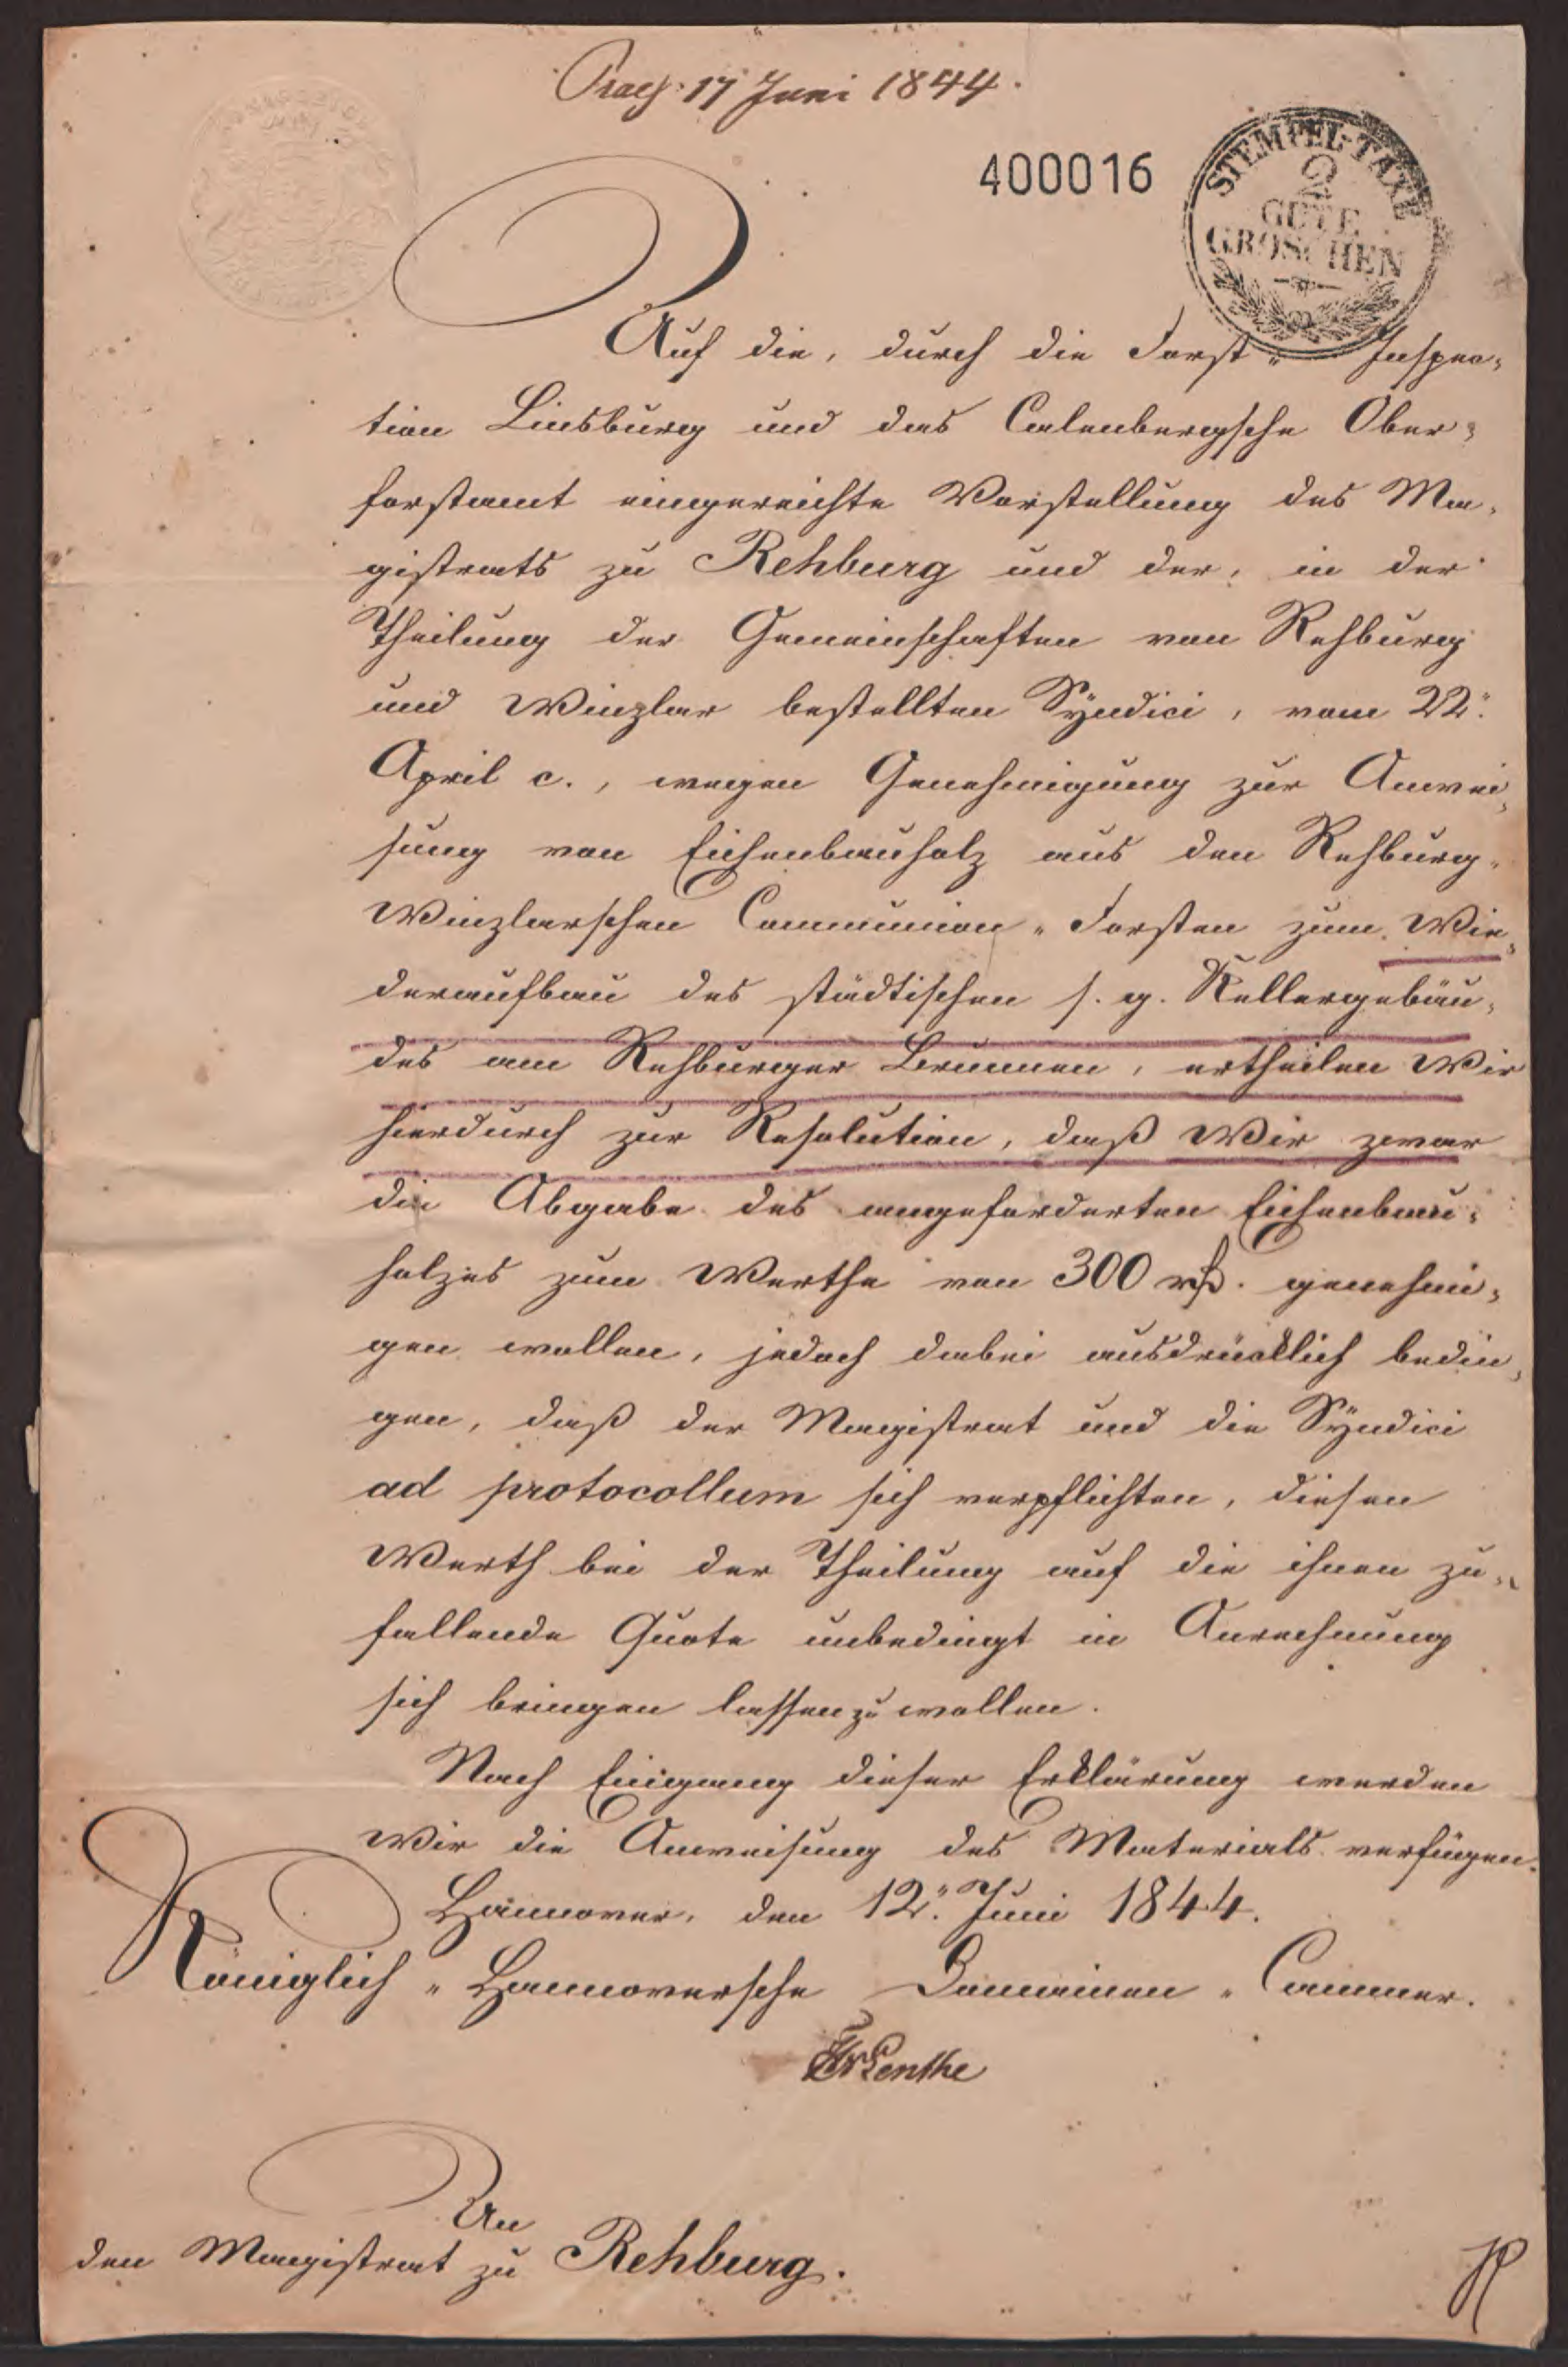 Praes: 17 Juni 1844.
400016
STEMPEL-TAXE
2
GUTE
GROSCHEN
Auf die, durch die Forst- Inspec-
tion Linsburg und das Calenbergsche Ober-
forstamt eingereichte Vorstellung des Ma-
gistrats zu Rehburg und der, in der
Theilung der Gemeinschaften von Rehburg
und Winzlar bestellten Syndici, vom 22.
April c., wegen Genehmigung zur Anwei-
sung von Eichenbauholz aus den Rehburg-
Winzlarschen Communion-Forsten zum Wie-
deraufbau des städtischen s. g. Kellergebäu-
des am Rehburger Brunnen, ertheilen Wir
hierdurch zur Resolution, daß Wir zwar
die Abgabe des angeforderten Eichenbau-
holzes zum Werthe von 300 rthl. genehmi-
gen wollen, jedoch dabei ausdrücklich bedin-
gen, daß der Magistrat und die Syndici
ad protocollum sich verpflichten, diesen
Werth bei der Theilung auf die ihnen zu-
fallende Quote unbedingt in Anrechnung
sich bringen lassen zu wollen.
Nach Eingang dieser Erklärung werden
Wir die Anweisung des Materials verfügen.
Hannover, den 12. Juni 1844.
Königlich-Hannoversche Domainen-Cammer.
An
den Magistrat zu Rehburg.